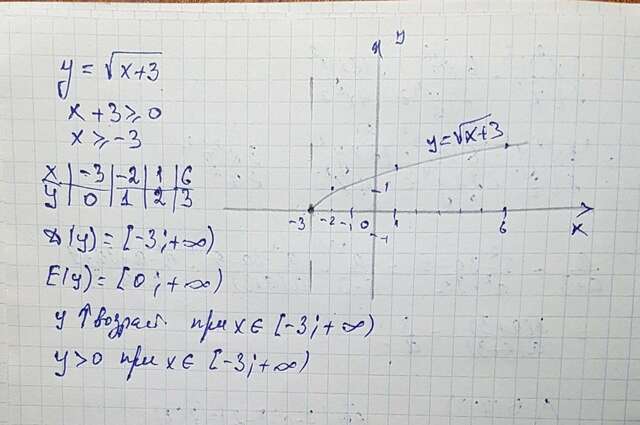 y = √x+3
x + 3 ⩾ 0
x ⩾ -3
x | -3 | -2 | 1 | 6
y | 0 | 1 | 2 | 3
D(y) = [-3; +∞)
E(y) = [0; +∞)
y ↑ возраст. при x ∈ [-3; +∞)
y > 0 при x ∈ [-3; +∞)
y
y = √x+3
1
-3 -2 -1 0 1 6 x
-1